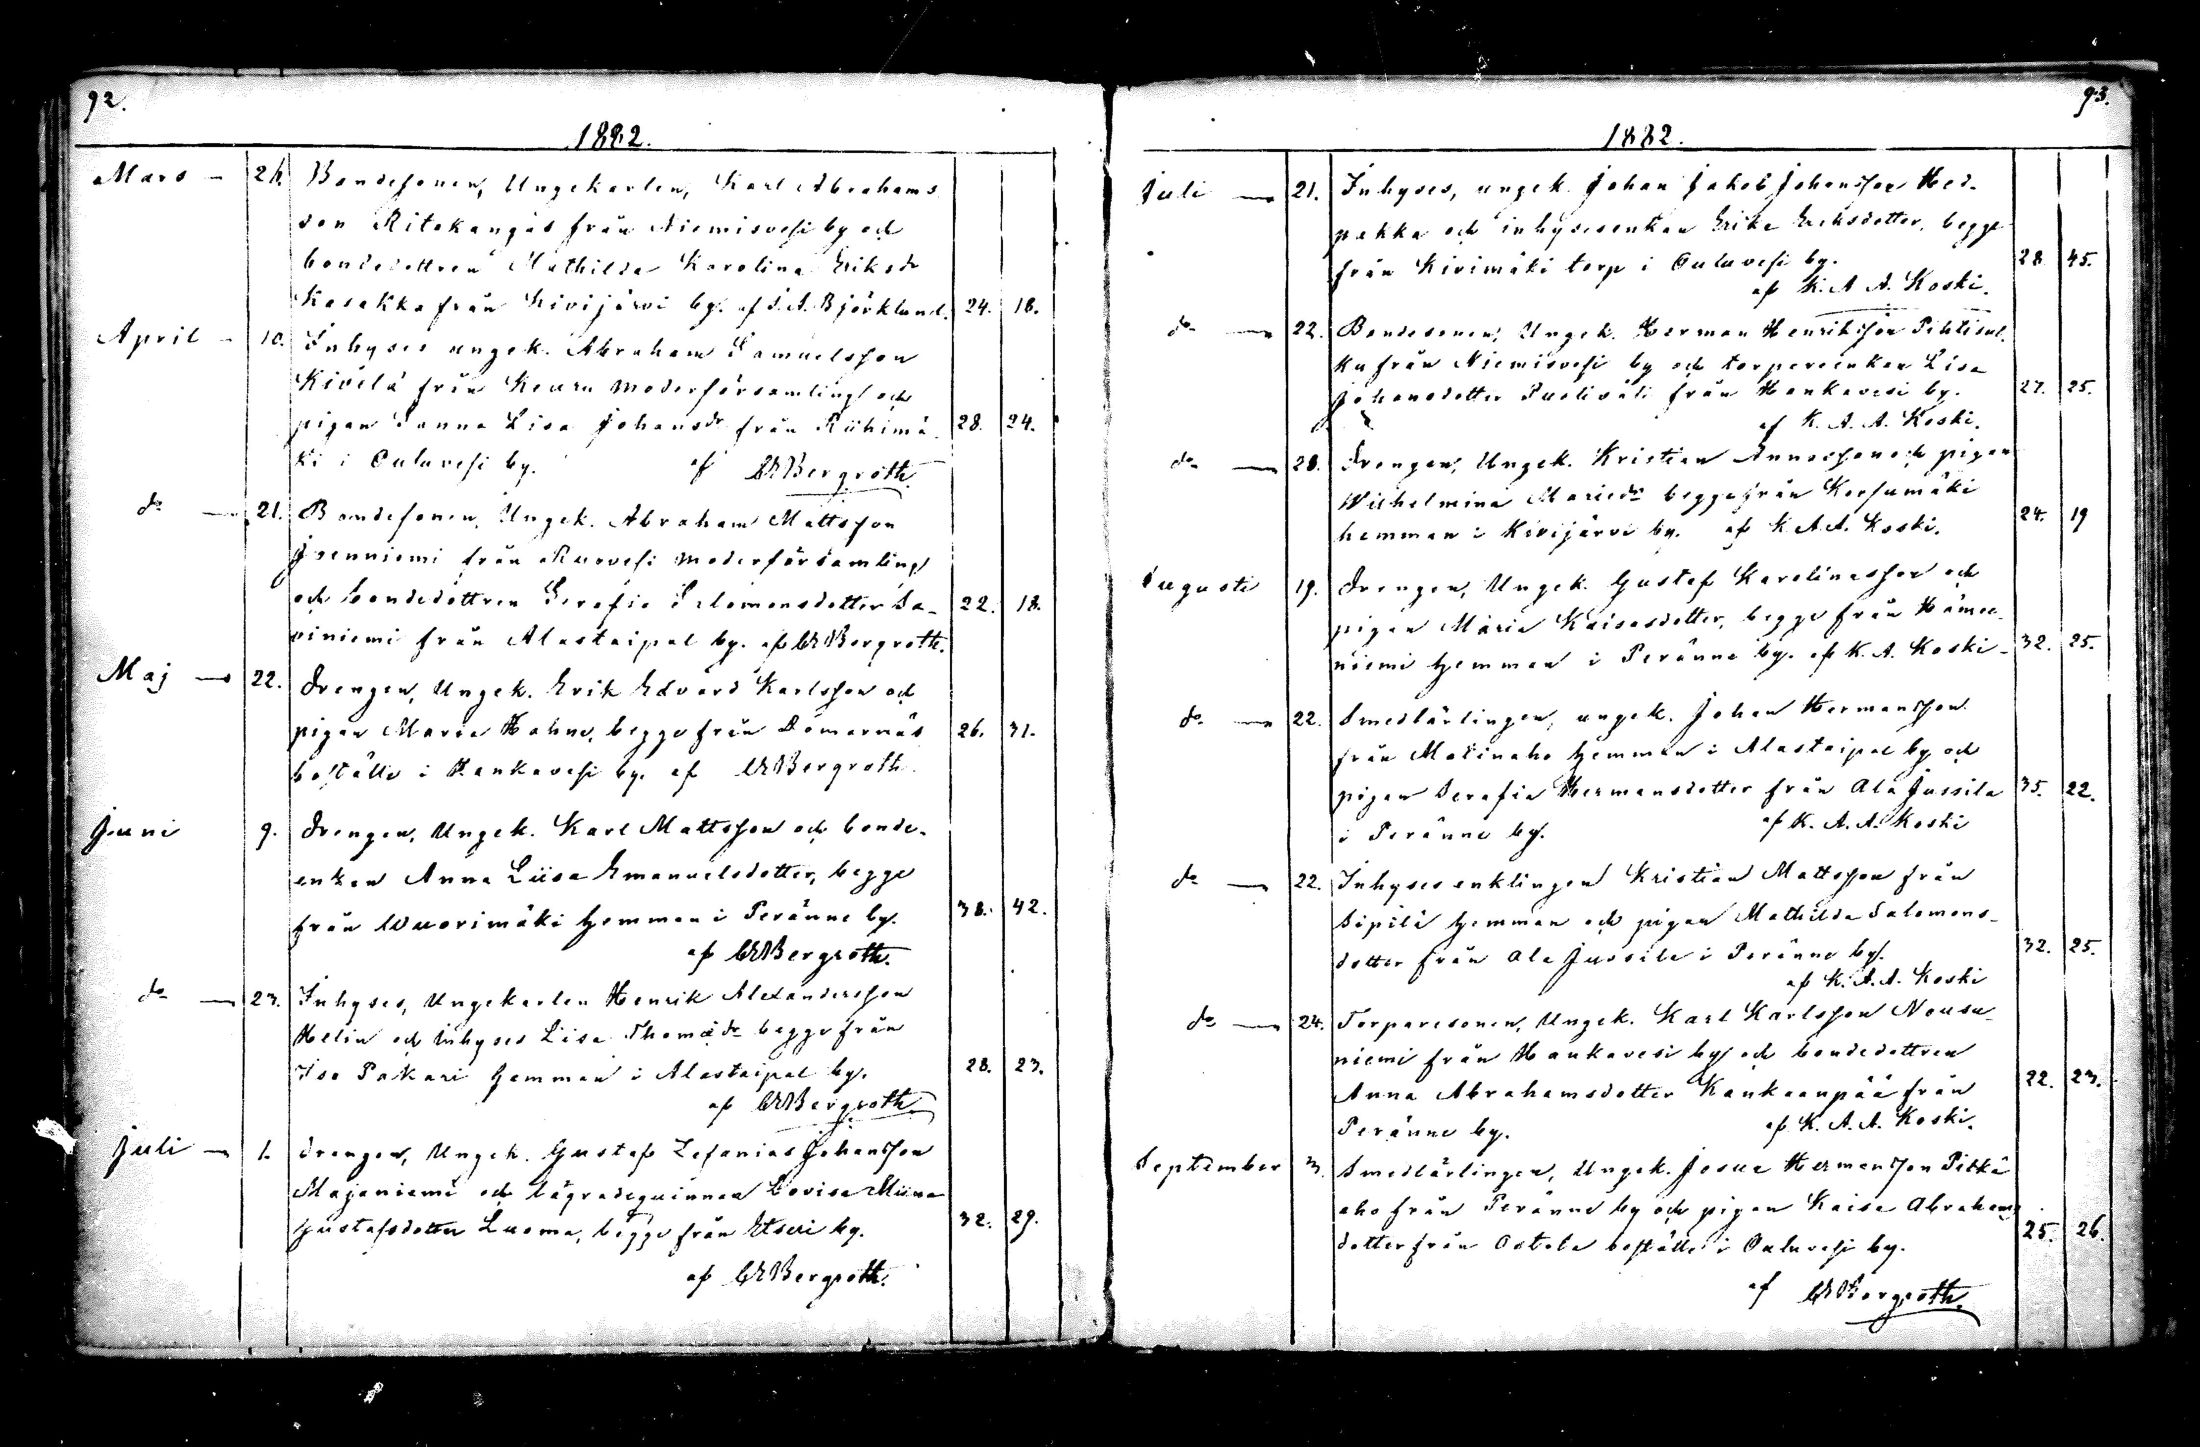 92.
1882.
Mars - 24. Bondesonen, Ungekarlen, Karl Abrahams
son Ritokangas från Niemisvesi by och
bondedottren Mathilda Karolina Eriksdr
Kasakka från Kivijärvi by. af J. A. Björklund. 24. 18.
April - 10. Inhyses ungek. Abraham Samuelsson
Kivelä från Keuru moderförsamling och
pigan Sanna Lisa Johansdr från Riihimä- 28. 24.
ki i Ouluvesi by. af CEBergroth.
do — 21. Bondesonen, Ungek. Abraham Mattsson
Isenniemi från Ruovesi moderförsamling
och bondedottren Serafia Salomonsdotter Sa- 22. 18.
viniemi från Alastaipal by. af CEBergroth.
Maj — 22. Drengen, Ungek. Erik Edvard Karlsson och
pigan Maria Hahne, begge från Domarnäs 26. 31.
boställe i Hankavesi by. af CEBergroth.
Juni 9. Drengen, Ungek. Karl Mattsson och bonde-
enkan Anna Liisa Emanuelsdotter, begge
från Wuorimäki hemman i Peränne by. 38. 42.
af CEBergroth.
do — 23. Inhyses, Ungekarlen Henrik Alexandersson
Helin och Inhyses Lisa Thomädr begge från
Iso Pakari hemman i Alastaipal by. 28. 23.
af CEBergroth
Juli — 1. Drengen, Ungek. Gustaf Zefanias Johansson
Majaniemi och lägradequinnan Lovisa Miina
Gustafsdotter Luoma, begge från Etseri by. 32. 29.
af CEBergroth.
93.
1882.
Juli — 21. Inhyses, ungek. Johan Jakob Johansson Hed-
pakka och inhysesenkan Erika Eriksdotter, begge
från Kivimäki torp i Ouluvesi by. 28. 45.
af K. A. A. Koski.
do — 22. Bondesonen, Ungek. Herman Henriksson Pihlisul-
ku från Niemisvesi by och torpareenkan Lisa
Johansdotter Puoliväli från Hankavesi by. 27. 25.
af K. A. A. Koski.
do — 28. Drengen, Ungek. Kristian Annasson och pigan
Wilhelmina Mariedr begge från Korsumäki
hemman i Kivijärvi by. af K. A. A. Koski. 24. 19
Augusti 19. Drengen, Ungek. Gustaf Karolinasson och
pigan Maria Kaisasdotter, begge från Hämee-
niemi hemman i Peränne by. af K. A. Koski - 32. 25.
do — 22. Smedlärlingen, ungek. Johan Hermansson
från Matinaho hemman i Alastaipal by och
pigan Serafia Hermansdotter från Ala Jussila 35. 22.
i Peränne by. af K. A. A. Koski
do — 22. Inhysesenklingen Kristian Mattsson från
Sipilä hemman och pigan Mathilda Salomons-
dotter från Ala Jussila i Peränne by. 32. 25.
af K. A. A. Koski
do — 24. Torparesonen, Ungek. Karl Karlsson Nousu-
niemi från Hankavesi by och bondedottren
Anna Abrahamsdotter Kankaanpää från 22. 23.
Peränne by. af K. A. A. Koski.
September 3. Smedlärlingen, Ungek. Josua Hermansson Pitkä
aho från Peränne by och pigan Kaisa Abrahams
dotter från Ostola boställe i Ouluvesi by. 25. 26.
af CEBergroth.